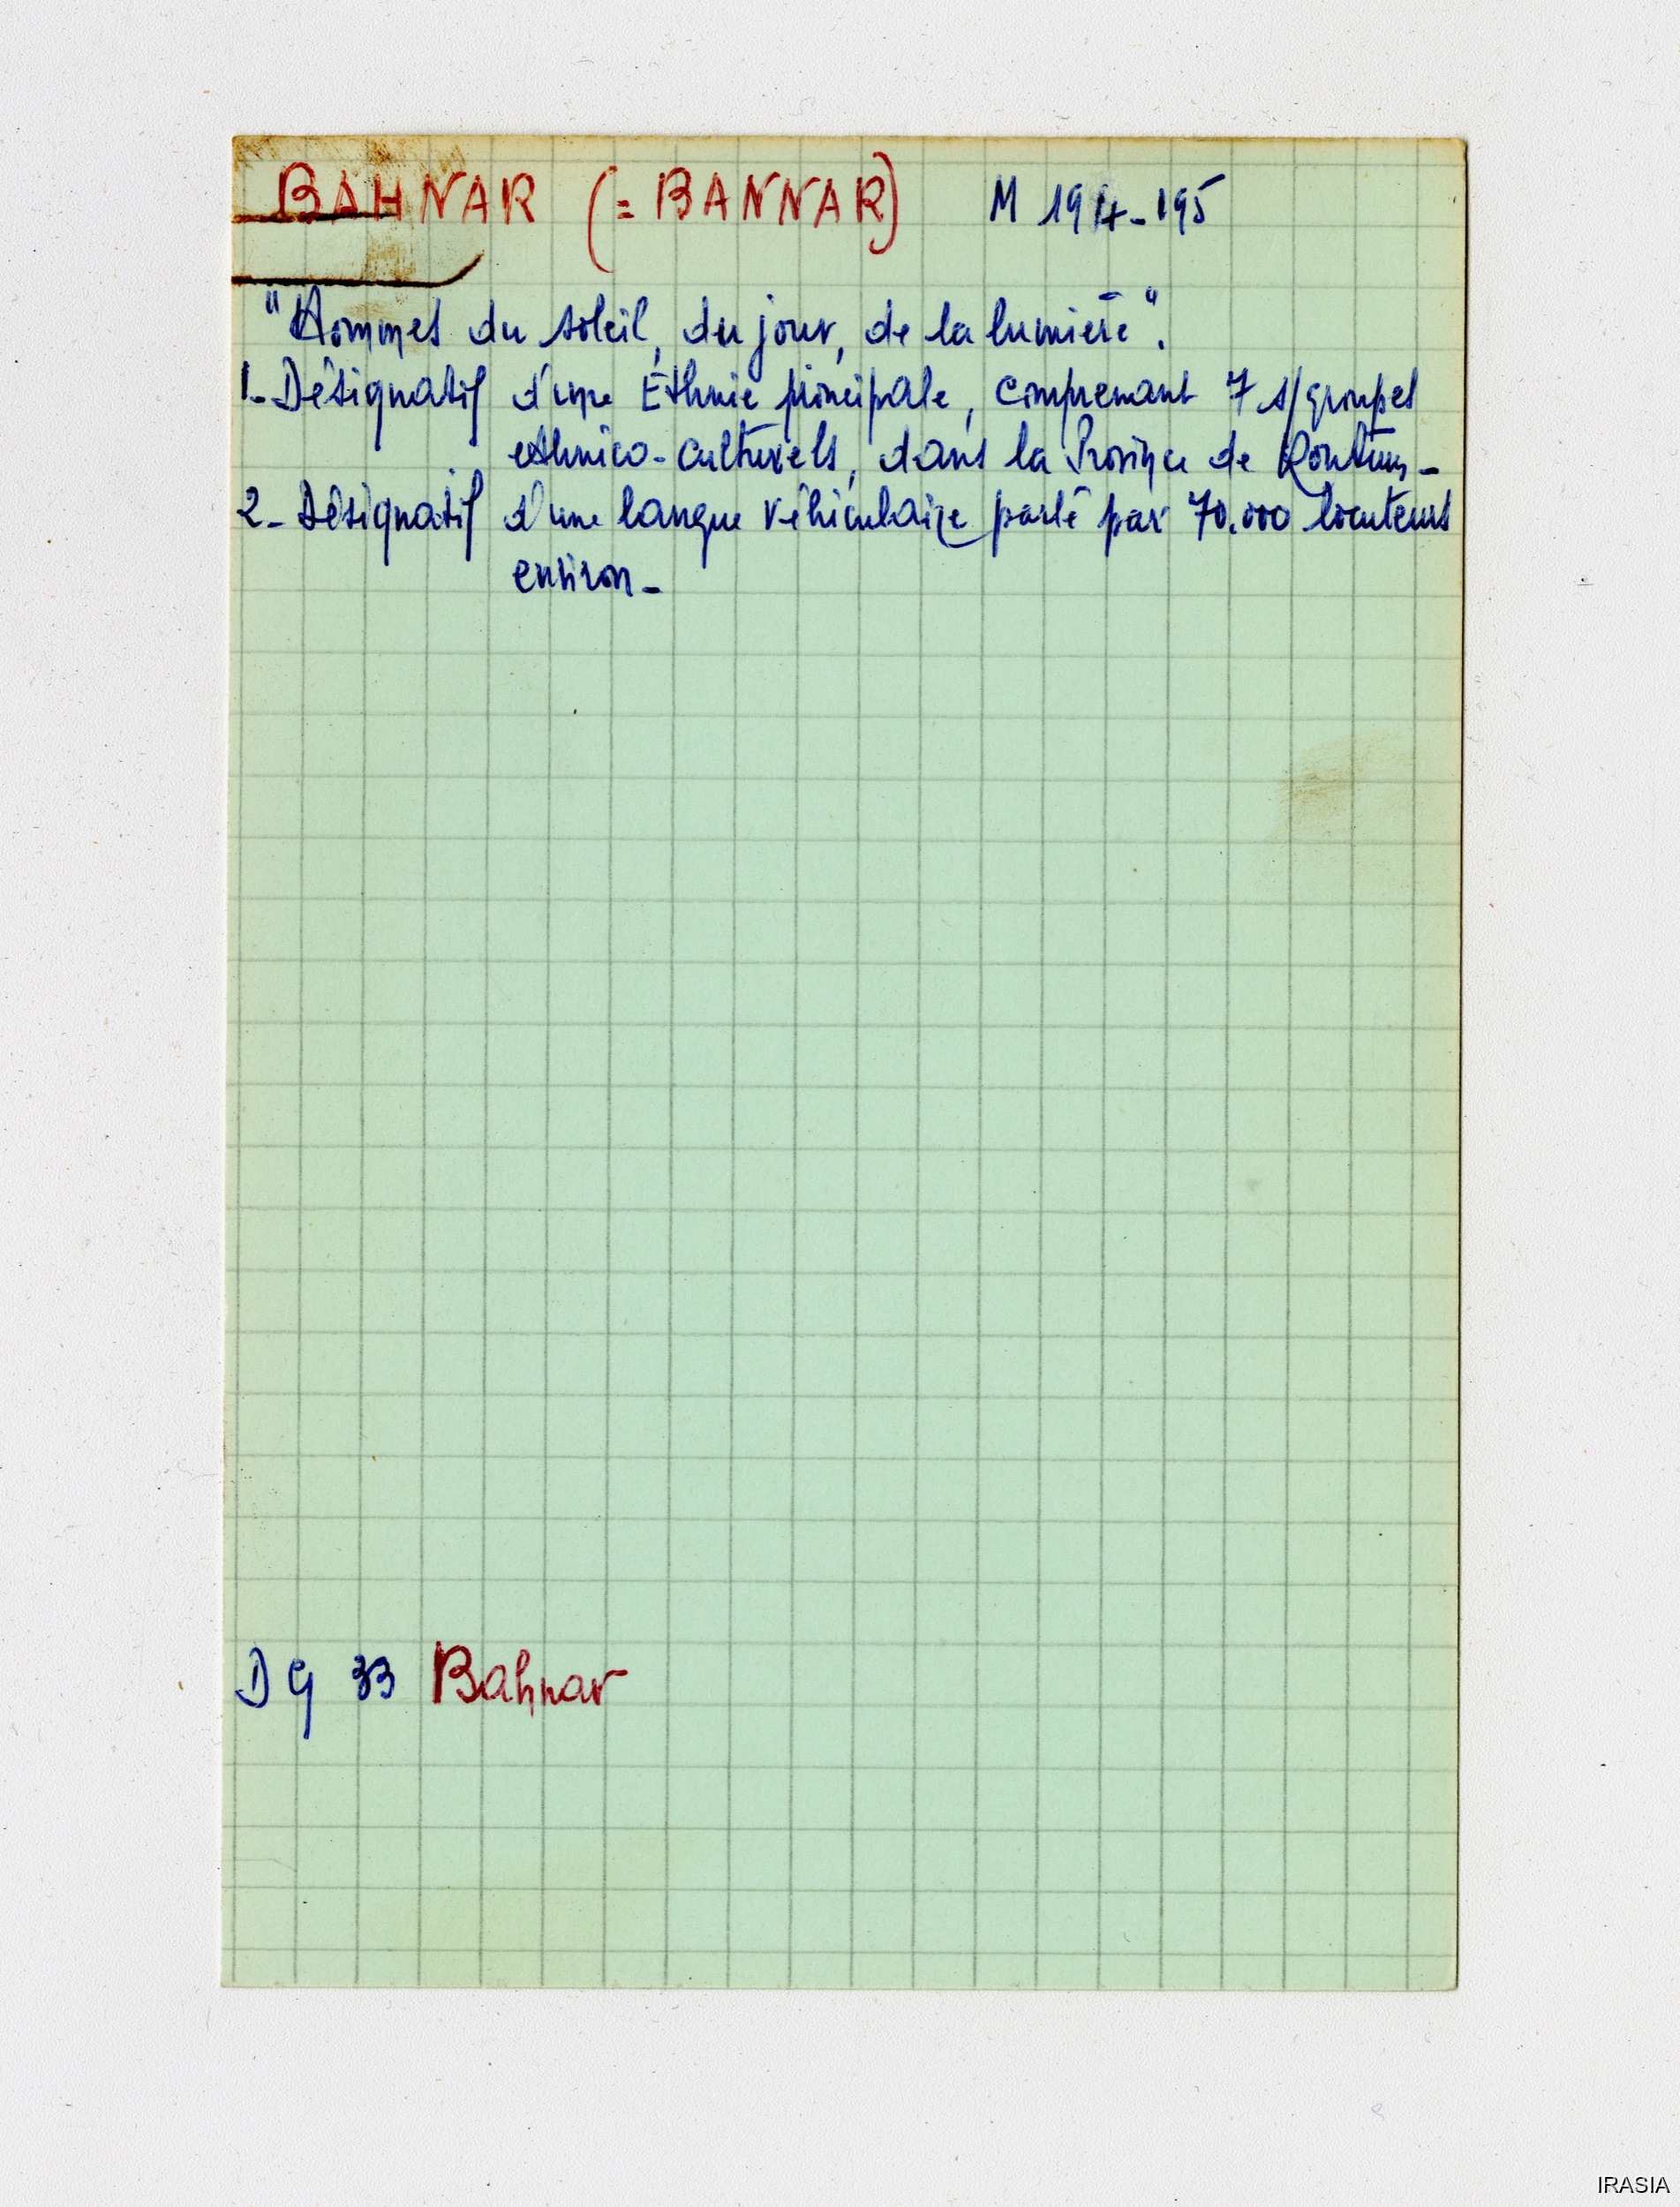 BAHNAR (= BANNAR) M 194-195
"Hommes du soleil, du jour, de la lumière".
1- Désignatif d'une Ethnie principale, comprenant 7 s/groupes
ethnico-culturels, dans la Province de Kontum-
2- Désignatif d'une langue véhiculaire parlé par 70.000 locuteurs
environ-
DG 33 Bahnar
IRASIA